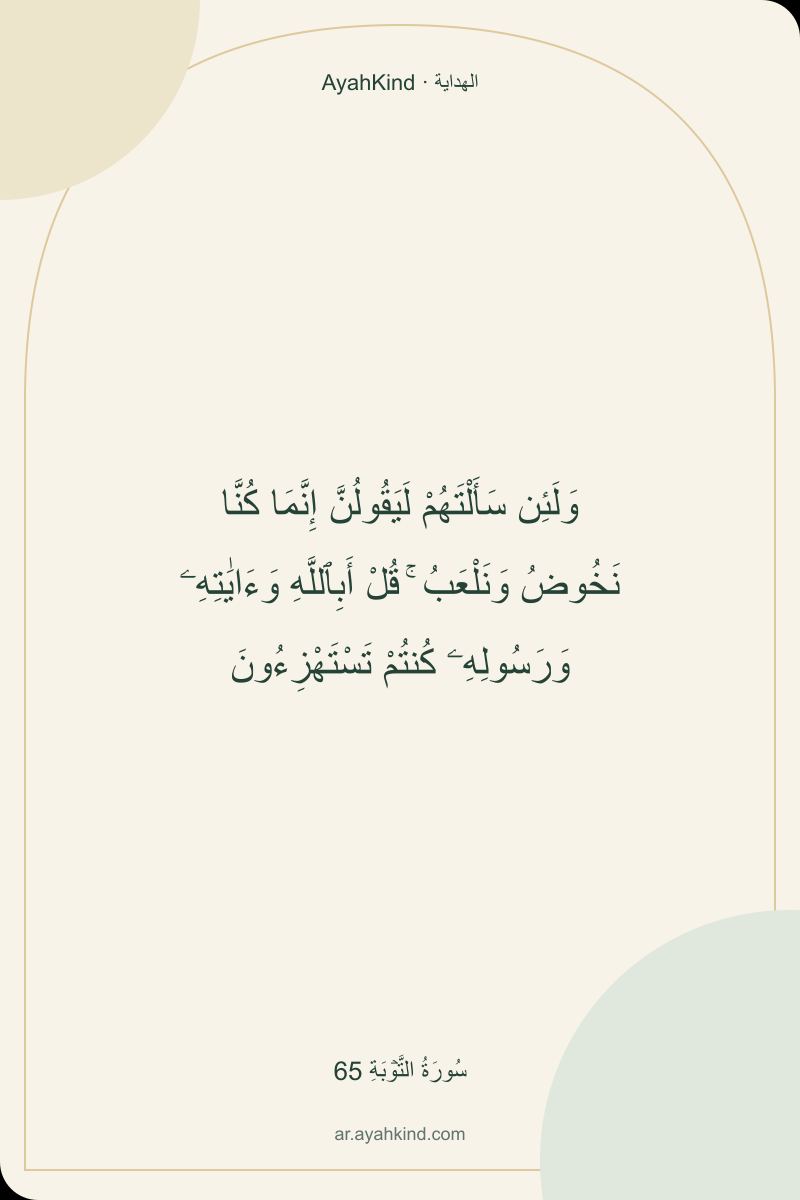 AyahKind · الهداية
وَلَئِن سَأَلْتَهُمْ لَيَقُولُنَّ إِنَّمَا كُنَّا
نَخُوضُ وَنَلْعَبُ ۚ قُلْ أَبِٱللَّهِ وَءَايَٰتِهِۦ
وَرَسُولِهِۦ كُنتُمْ تَسْتَهْزِءُونَ
سُورَةُ التَّوۡبَةِ 65
ar.ayahkind.com